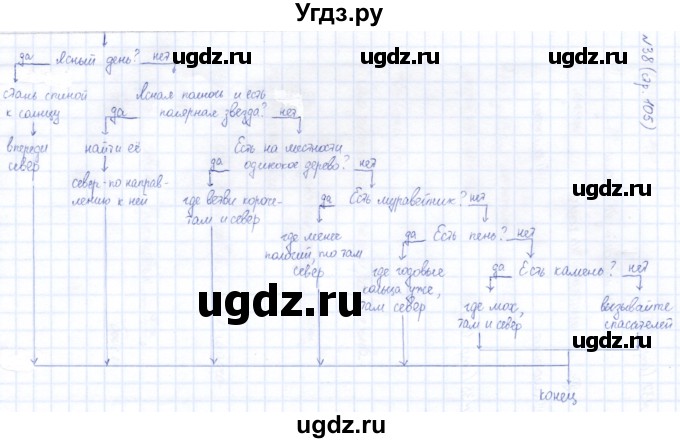 Угдз.ру
№38 (стр 105)
да Ясный день? нет
стань спиной
к солнцу
Ясная полночь и есть
да полярная звезда? нет
впереди
север
найти её
север - по направ-
лению к ней
Есть на местности
да одинокое дерево? нет
где ветви короче -
там и север
да Есть муравейник? нет
где менее
пологий, то там
север
да Есть пень? нет
где годовые
кольца уже,
там север
да Есть камень? нет
где мох,
там и север
вызывайте
спасателей
конец
ugdz.ru
ugdz.ru
ugdz.ru
ugdz.ru
ugdz.ru
ugdz.ru
ugdz.ru
ugdz.ru
ugdz.ru
ugdz.ru
ugdz.ru
ugdz.ru
ugdz.ru